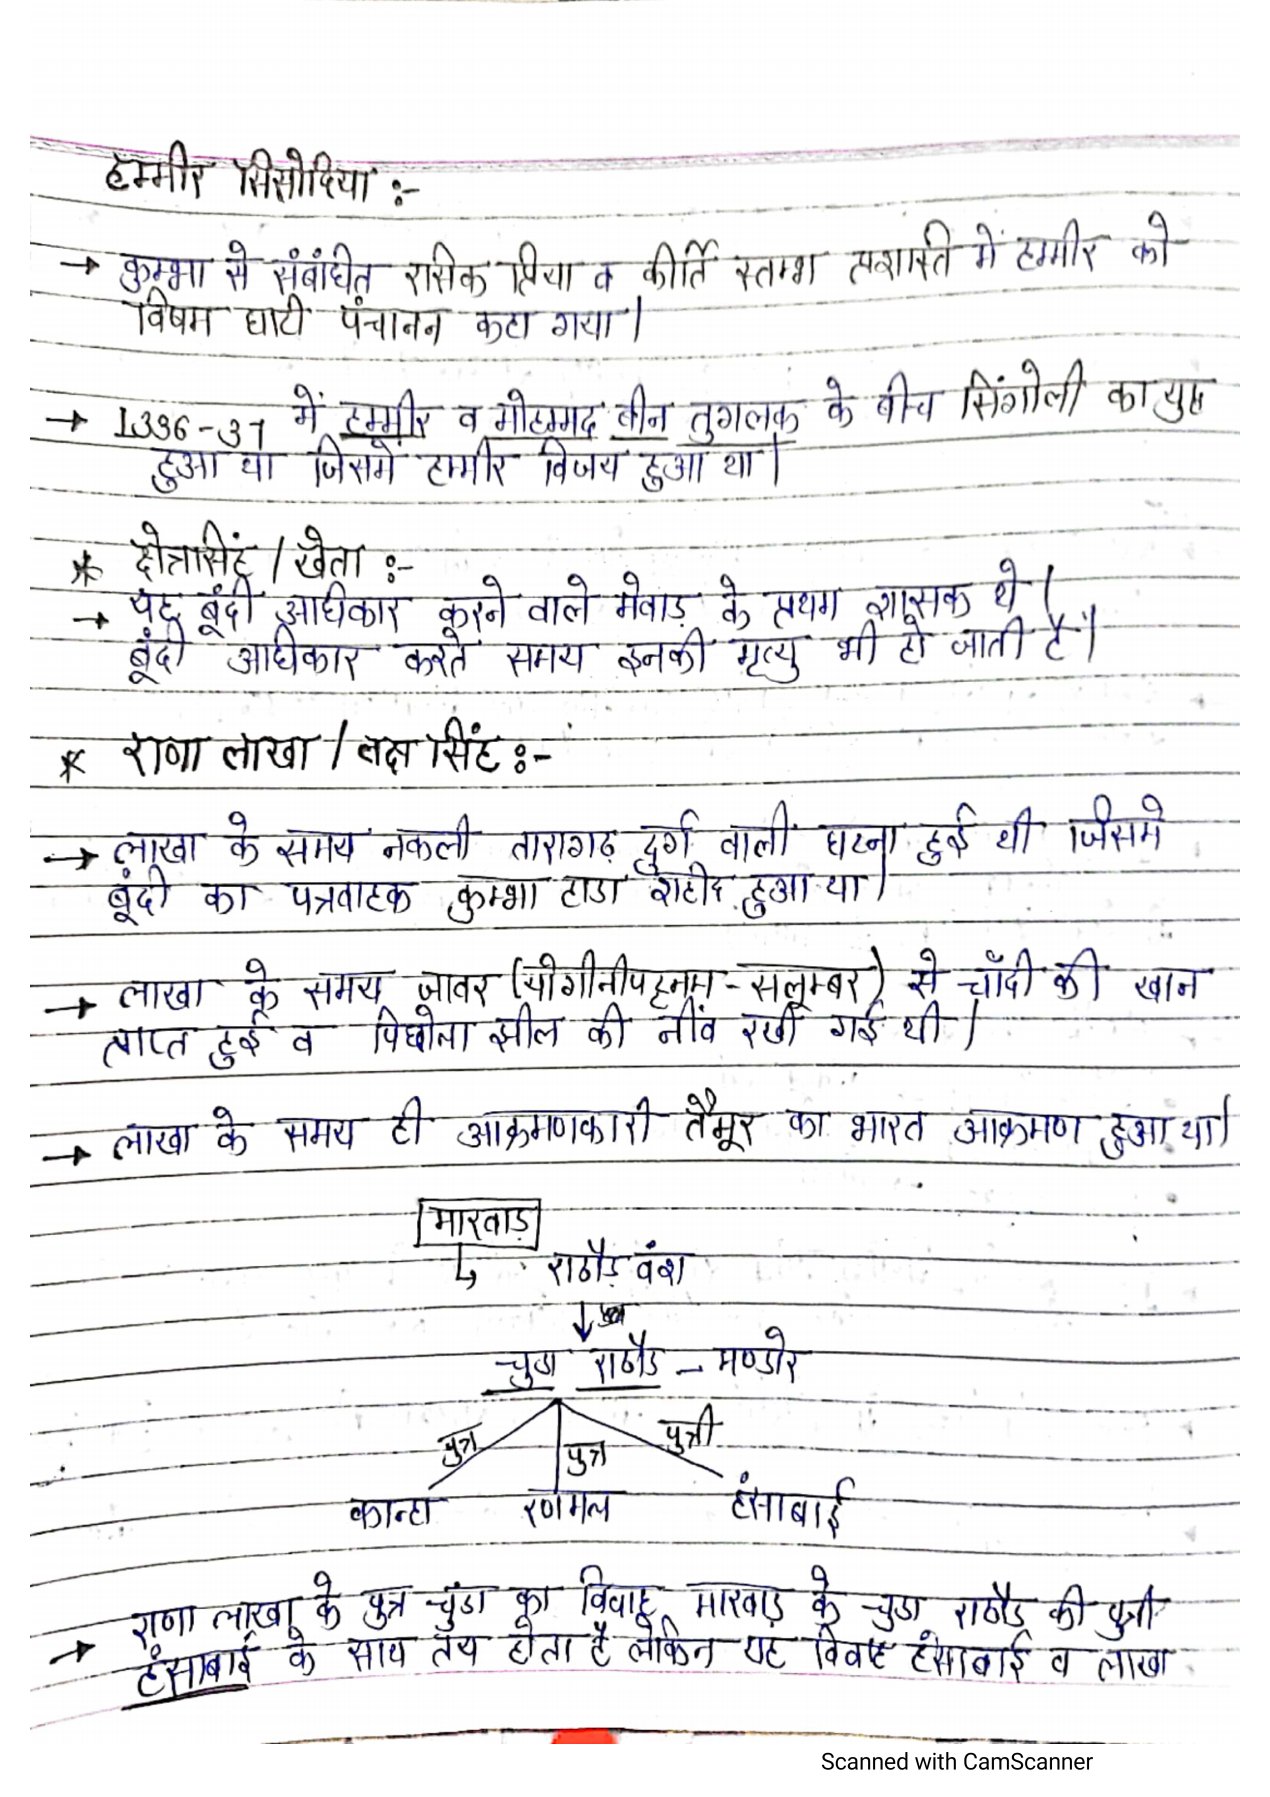 हम्मीर सिसोदिया :-
→ कुम्भा से संबंधित रसिक प्रिया व कीर्ति स्तम्भ प्रशस्ति में हम्मीर को
विषम घाटी पंचानन कहा गया।
→ 1336-37 में हम्मीर व मोहम्मद बीन तुगलक के बीच सिंगोली का युद्ध
हुआ था जिसमें हम्मीर विजय हुआ था।
* क्षेत्रासिंह / खेता :-
→ यह बूंदी अधिकार करने वाले मेवाड़ के प्रथम शासक थे।
बूंदी अधिकार करते समय इनकी मृत्यु भी हो जाती है।
* राणा लाखा / लक्ष सिंह :-
→ लाखा के समय नकली तारागढ़ दुर्ग वाली घटना हुई थी जिसमें
बूंदी का पत्रवाहक कुम्भा हाडा शहीद हुआ था।
→ लाखा के समय जावर (योगीनीपट्टनम - सलूम्बर) से चाँदी की खान
प्राप्त हुई व पिछोला झील की नींव रखी गई थी।
→ लाखा के समय ही आक्रमणकारी तैमूर का भारत आक्रमण हुआ था।
मारवाड़
↳ राठौड़ वंश
↓
चुडा राठौड - मण्डोर
पुत्र पुत्र पुत्री
कान्हा रणमल हंसाबाई
→ राणा लाखा के पुत्र चुंडा का विवाह मारवाड़ के चुडा राठौड़ की पुत्री
हंसाबाई के साथ तय होता है लेकिन यह विवाह हंसाबाई व लाखा
Scanned with CamScanner